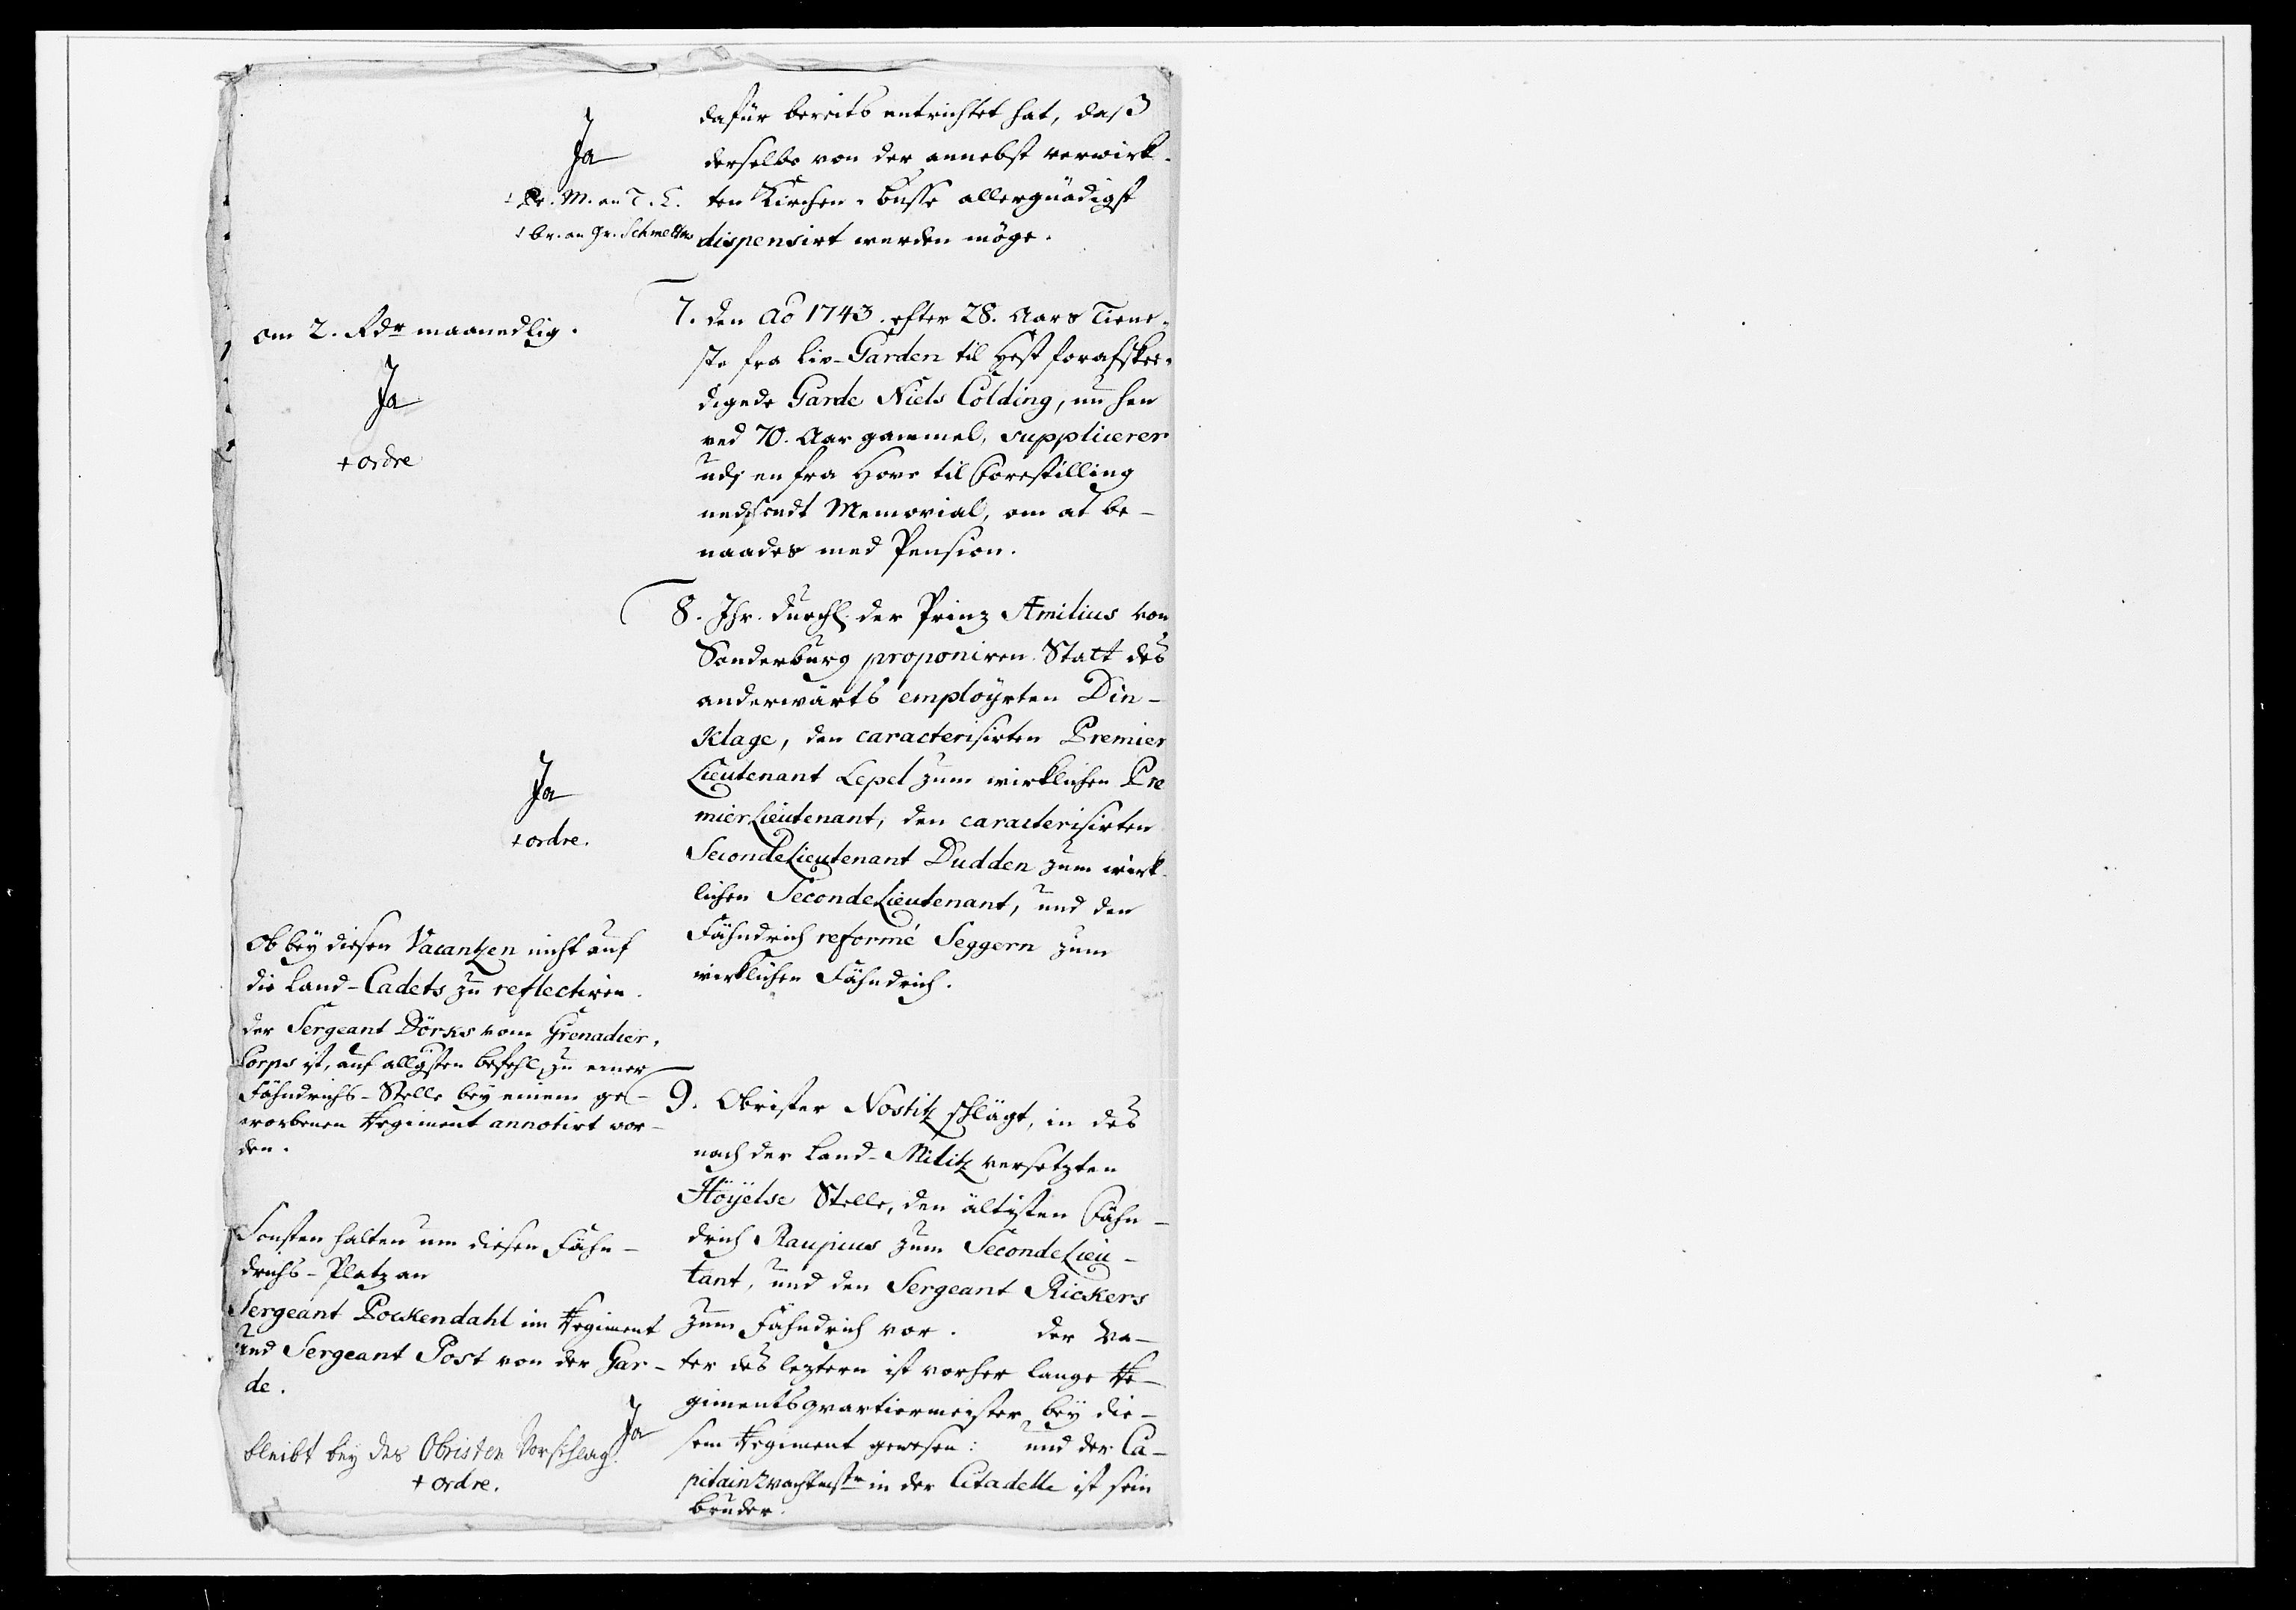 dafür bereits entrichtet hat, daß
derselbe von der annebst verwirk-
ten Kirchen-busse allergnädigst
dispensirt werden möge.
Ja
Pr. M. an T. L.
+ br. an Gr. Schmettau
7. den Ao 1743. efter 28. Aars Tiene-
ste fra Liv-Garden til Hest forafskee-
digede Garde Niels Colding, nu hen
ved 70. Aar gammel, supplicerer
udj en fra Hove til Forestilling
nedsendt Memorial, om at be-
naades med Pension.
om 2. Rdr maanedlig.
Ja
+ ordre
8. Ihr. Durchl. der Prinz Æmilius von
Sonderburg proponiren Statt des
anderwärts employrten Din-
klage, den caracterisirten Premier
Lieutenant Lepel zum wirklichen Pre
mierLieutenant, den caracterisirten
SecondeLieutenant Dudden zum wirk-
lichen SecondeLieutenant, und den
Fähndrich reformé Seggern zum
wirklichen Fähndrich.
Ja
+ ordre.
Ob bey diesen Vacantzen nicht auf
die Land-Cadets zu reflectiren.
der Sergeant Dörks vom Grenadier-
Corps ist, auf allgsten befehl, zu einer
Fähndrichs-Stelle bey einem ge-
worbenen Regiment annotirt wor-
den.
9. Obrister Nostitz schlägt, in des
nach der Land-Militz versetzten
Höyelse Stelle, den ältisten Fähn-
drich Raupius zum SecondeLieu-
tant, und den Sergeant Rickers
zum Fähndrich vor. der Va-
ter des leztern ist vorher lange Re-
gimentsquartiermeister bey die-
sem Regiment gewesen: und der Ca-
pitain Wachtmstr in der Citadelle ist sein
bruder.
Sonsten halten um diesen Fähn-
drichs-Platz an
Sergeant Pockendahl im Regiment
und Sergeant Post von der Gar-
de.
Ja
bleibt bey des Obristen Vorschlag.
+ ordre.